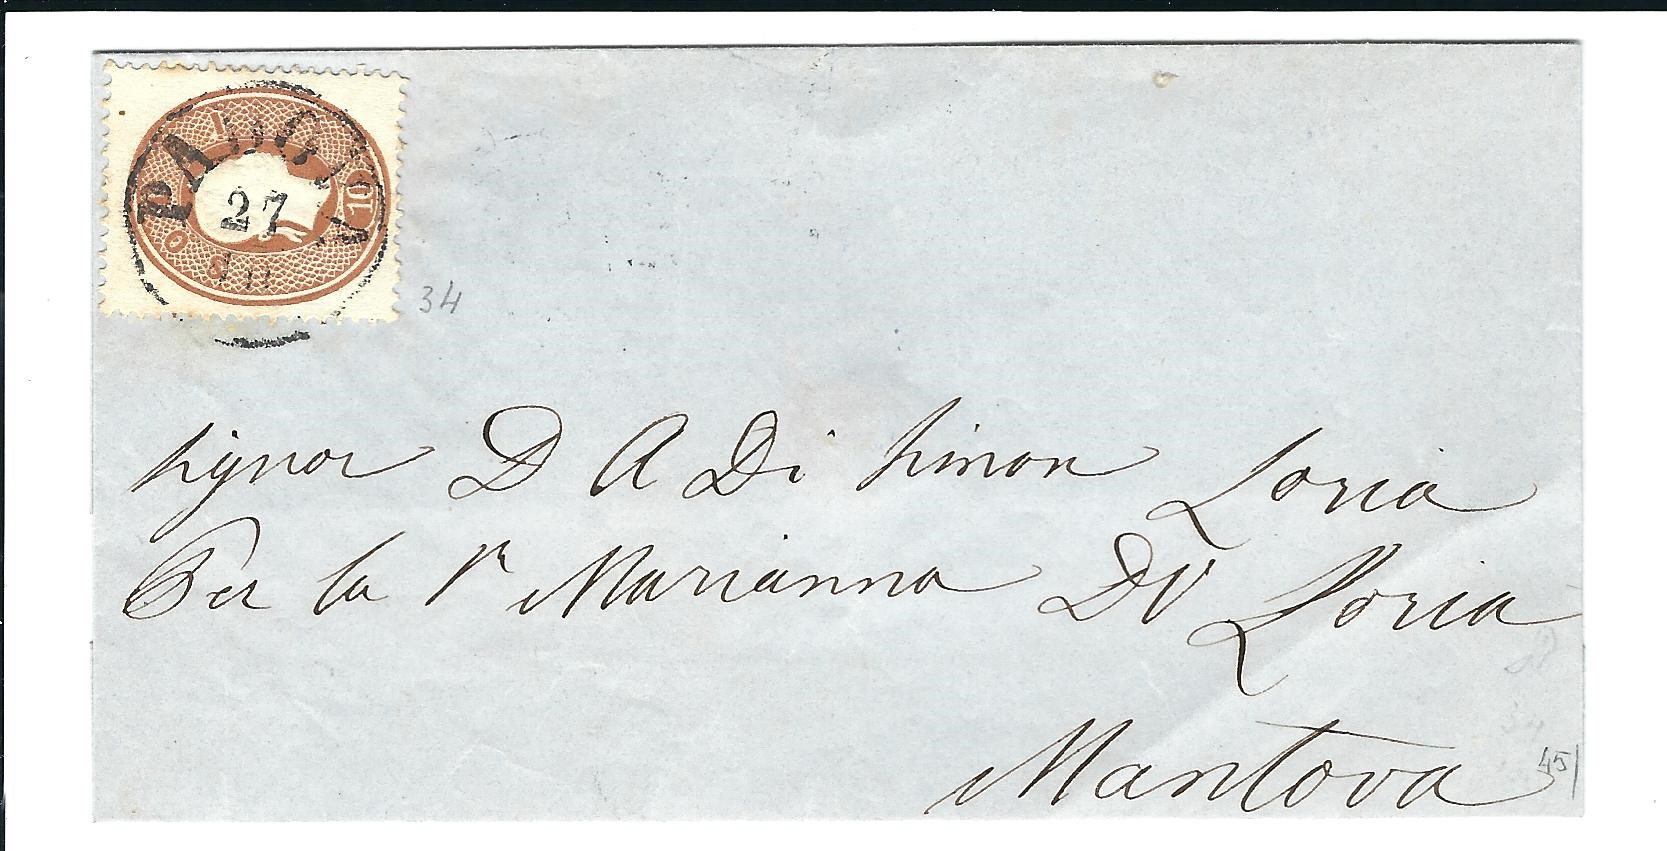 PADOVA
27
10 SOLDI 10
34
Signor D A Di Simon Loria
Per la Sra Marianna DV Loria
Mantova
45